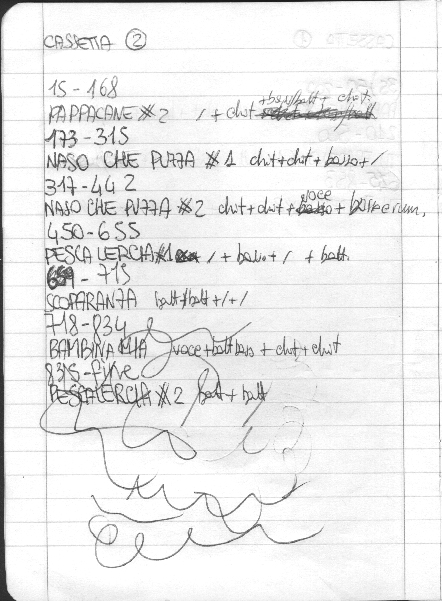 CASSETTA 2
15 - 168
+ bass/batt + chit.
PAPPACANE #2 / + chit
173 - 315
NASO CHE PUZZA #1 chit + chit + basso + /
317 - 442
voce
NASO CHE PUZZA #2 chit + chit + basso + bass e rum.
450 - 655
PESCALERCIA #1 / + basso + / + batt.
659 - 715
SCOPARANZA batt/batt + / + /
718 - 834
BAMBINA MIA voce + batt bass + chit + chit
835 - fine
PESCALERCIA #2 batt + batt